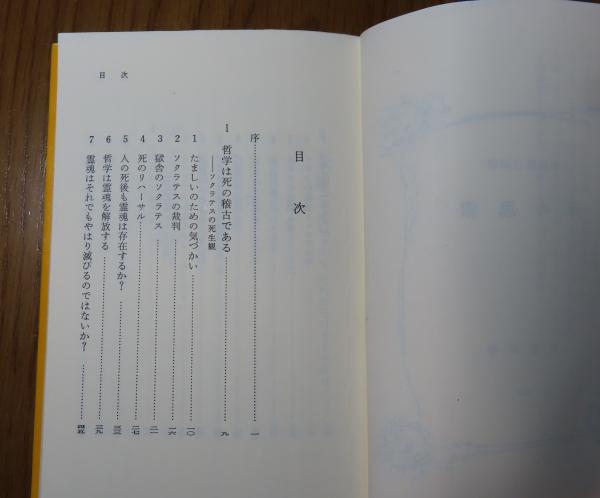 目次
目次
序……………………………一
I 哲学は死の稽古である……………九
――ソクラテスの死生観
1 たましいのための気づかい……………一〇
2 ソクラテスの裁判……………一六
3 獄舎のソクラテス……………二一
4 死のリハーサル……………二七
5 人の死後も霊魂は存在するか?……………三三
6 哲学は霊魂を解放する……………三九
7 霊魂はそれでもやはり滅びるのではないか?……………四五